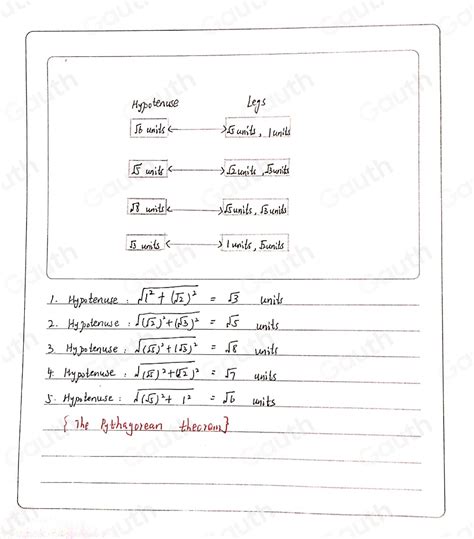 Hypotenuse Legs
√6 units √5 units, 1 units
√5 units √2 units, √3 units
√8 units √5 units, √3 units
√3 units 1 units, √2 units
1. Hypotenuse : √1² + (√2)² = √3 units
2. Hypotenuse : √(√2)² + (√3)² = √5 units
3. Hypotenuse : √(√5)² + (√3)² = √8 units
4. Hypotenuse : √(√5)² + (√2)² = √7 units
5. Hypotenuse : √(√5)² + 1² = √6 units
{ The Pythagorean theorem}